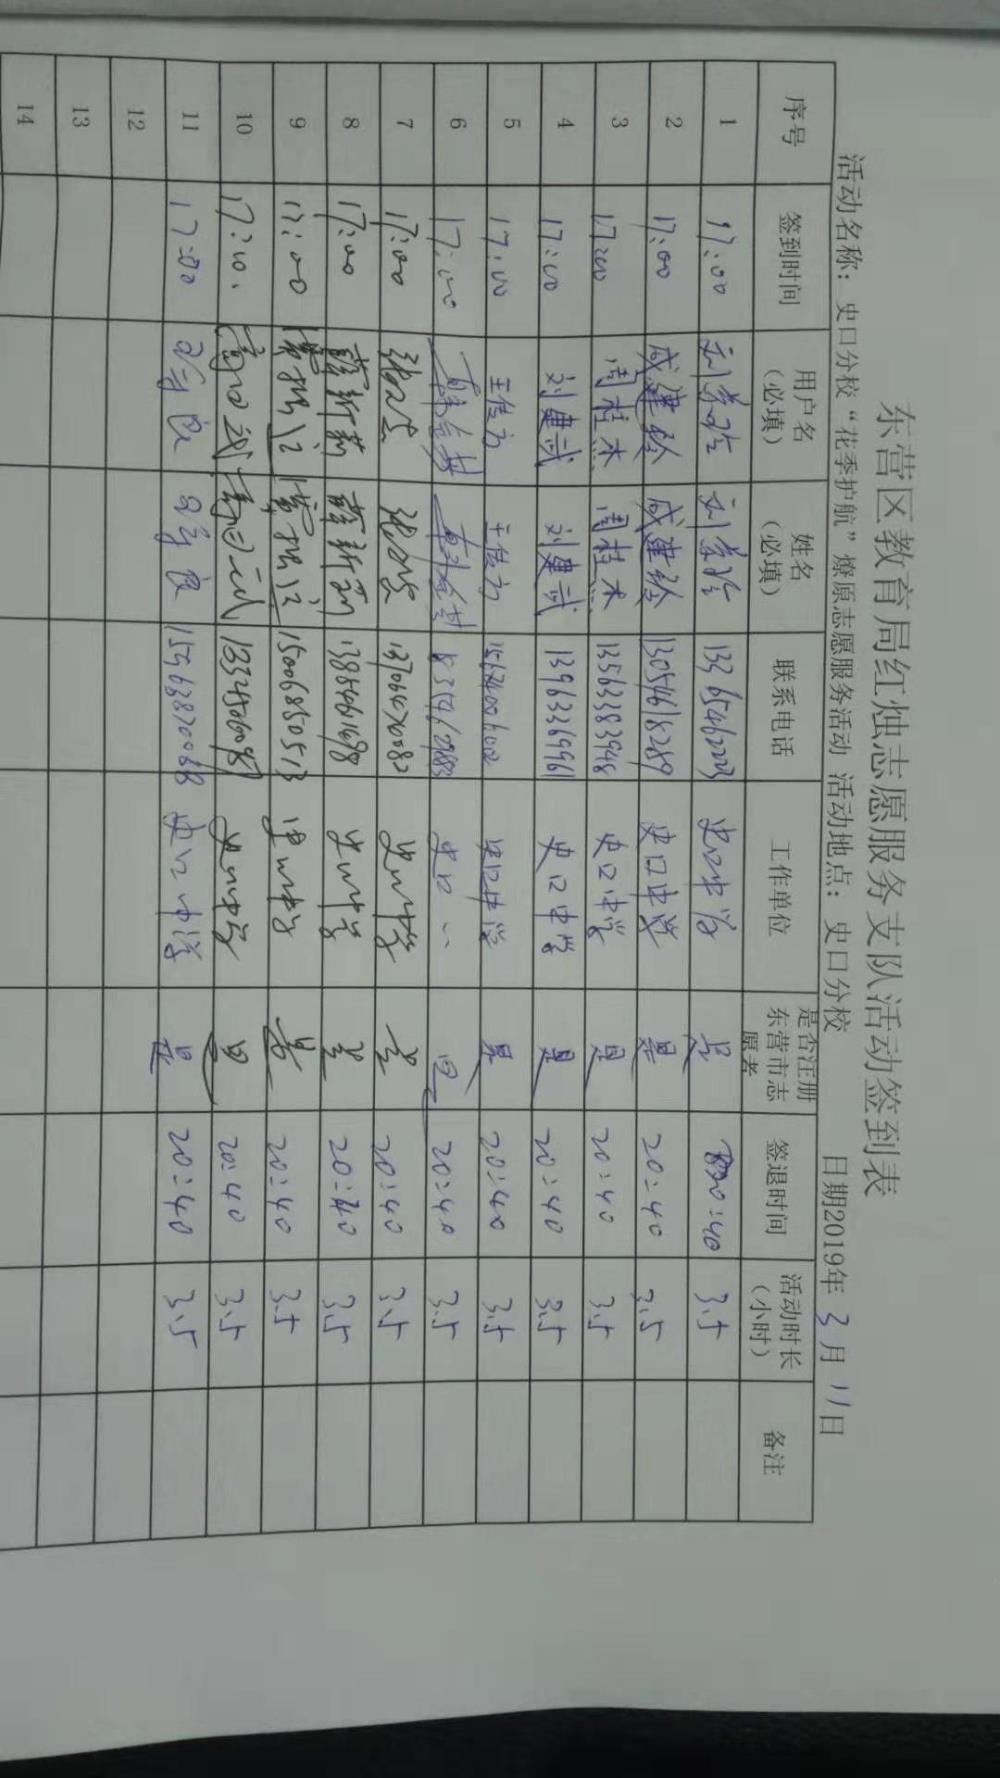 东营区教育局红烛志愿服务支队活动签到表
活动名称：史口分校“花季护航”燎原志愿服务活动 活动地点：史口分校 日期2019年3月11日
序号 签到时间 用户名（必填） 姓名（必填） 联系电话 工作单位 是否注册东营市志愿者 签退时间 活动时长（小时） 备注
1 17:00 史口中学 是 20:40 3.5
2 17:00 成建铃 成建铃 13054618269 史口中学 是 20:40 3.5
3 17:00 周桂木 周桂木 13563383948 史口中学 是 20:40 3.5
4 17:00 刘建武 刘建武 1396336961 史口中学 是 20:40 3.5
5 17:00 王传方 王传方 史口中学 是 20:40 3.5
6 17:00 史口 〃 是 20:40 3.5
7 17:00 13706470082 史口中学 是 20:40 3.5
8 17:00 薛新新 薛新新 史口中学 是 20:40 3.5
9 17:00 15006850513 史口中学 是 20:40 3.5
10 17:00. 史口中学 是 20:40 3.5
11 17:00 15963820068 史口中学 是 20:40 3.5
12
13
14